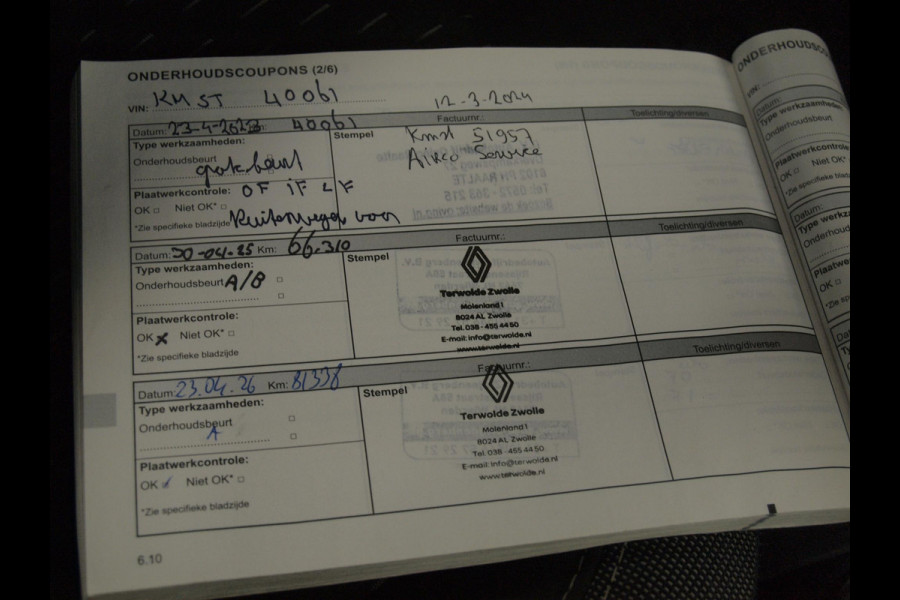 ONDERHOUDSCOUPONS (2/6)
VIN: KMST 40061
12-3-2024
Datum: 23-4-2023 40061 Factuurnr.: Toelichting/diversen
Type werkzaamheden:
Stempel
Kmst 51957
Airco Service
Onderhoudsbeurt
grote beurt
Plaatwerkcontrole: OF IF LF
OK □ Niet OK* □
*Zie specifieke bladzijde
Datum: 30-04-25 Km: 66.310 Factuurnr.: Toelichting/diversen
Type werkzaamheden:
Stempel
Onderhoudsbeurt A/B □
□
Terwolde Zwolle
Molenland 1
8024 AL Zwolle
Tel. 038 - 455 44 50
E-mail: info@terwolde.nl
www.terwolde.nl
Plaatwerkcontrole:
OK x Niet OK* □
*Zie specifieke bladzijde
Datum: 23.04.26 Km: 81338 Factuurnr.: Toelichting/diversen
Type werkzaamheden:
Stempel
Onderhoudsbeurt □
A □
Terwolde Zwolle
Molenland 1
8024 AL Zwolle
Tel. 038 - 455 44 50
E-mail: info@terwolde.nl
www.terwolde.nl
Plaatwerkcontrole:
OK Niet OK* □
*Zie specifieke bladzijde
6.10
ONDERHOUDSCO
VIN:
Datum:
Type werkzaamheden:
Onderhoudsbeurt
Plaatwerkcontrole
OK □ Niet OK*
*Zie specifieke bladz
Datum:
Type werkza
Onderhoud
Plaatwe
OK □
*Zie sp